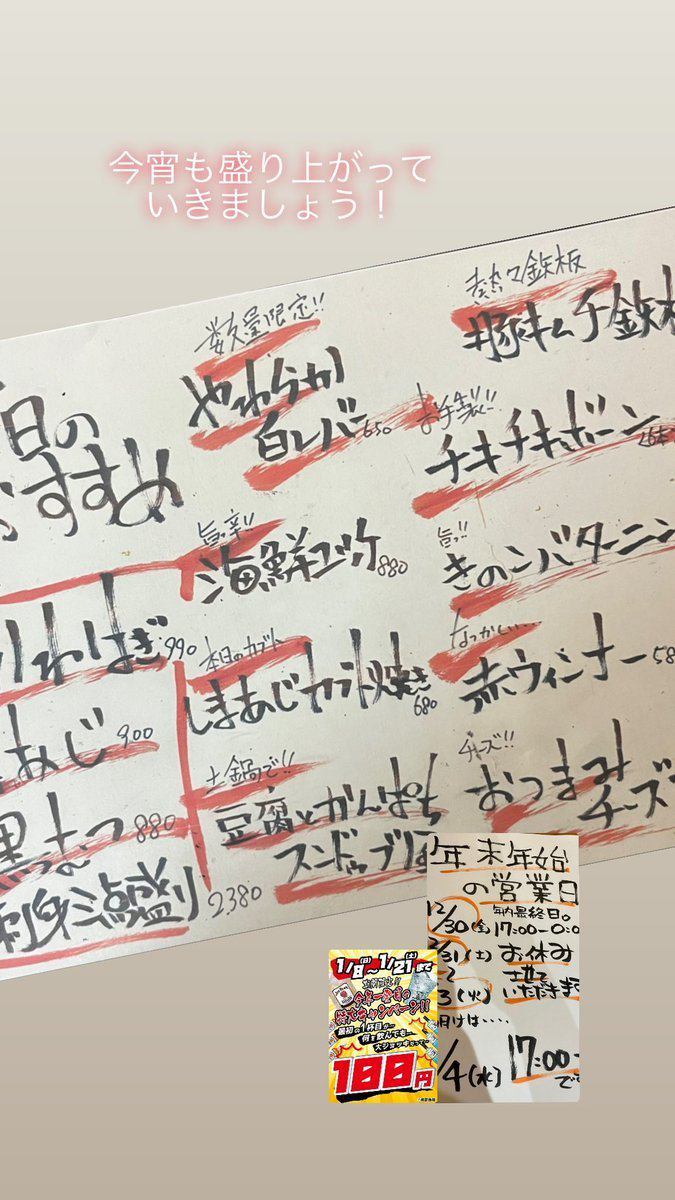 今宵も盛り上がって
いきましょう！
日の
おすすめ
わはぎ 990
あじ 900
黒むつ 880
刺身三点盛り 2380
数量限定!!
やわらか
白レバー 650
旨辛!!
海鮮ユッケ 880
本日のカブト
しまあじカブト焼き
680
土鍋で!!
豆腐とかんぱち
スンドゥブ
熱々鉄板
豚キムチ鉄板
お手製!!
チキチキボーン
旨っ!!
きのこバターニン
なつかしい…
赤ウィンナー 58
チーズ!!
おつまみ
チーズ
年末年始
の営業日
12/30(金) 年内最終日。
17:00-0:0
/31(土) お休み
3(火) させて
いただきます
明けは‥‥
/4(水) 17:00-
です
1/8(日)〜1/21(土)まで
今年一発目の
特大キャンペーン!!
最初の1杯目が…
何を飲んでも…
大ジョッキだって…
100円